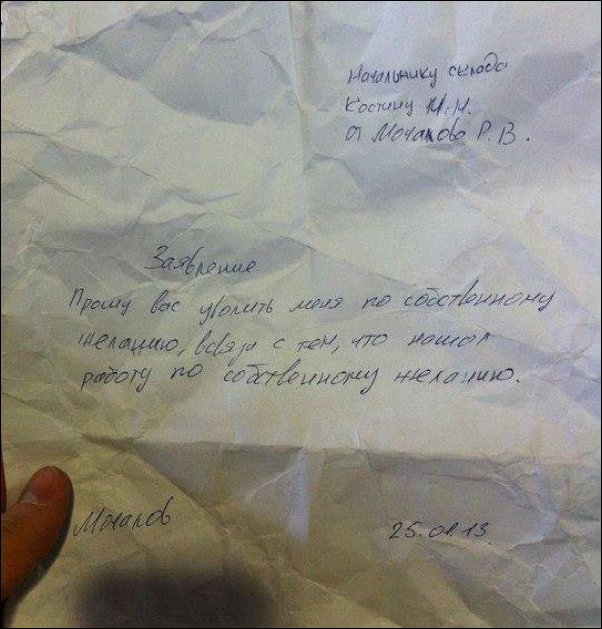 Начальнику склада
Костину М.Н.
от Мочалова Р.В.
Заявление
Прошу вас уволить меня по собственному
желанию, в связи с тем, что нашол
работу по собственному желанию.
Мочалов
25.01.13